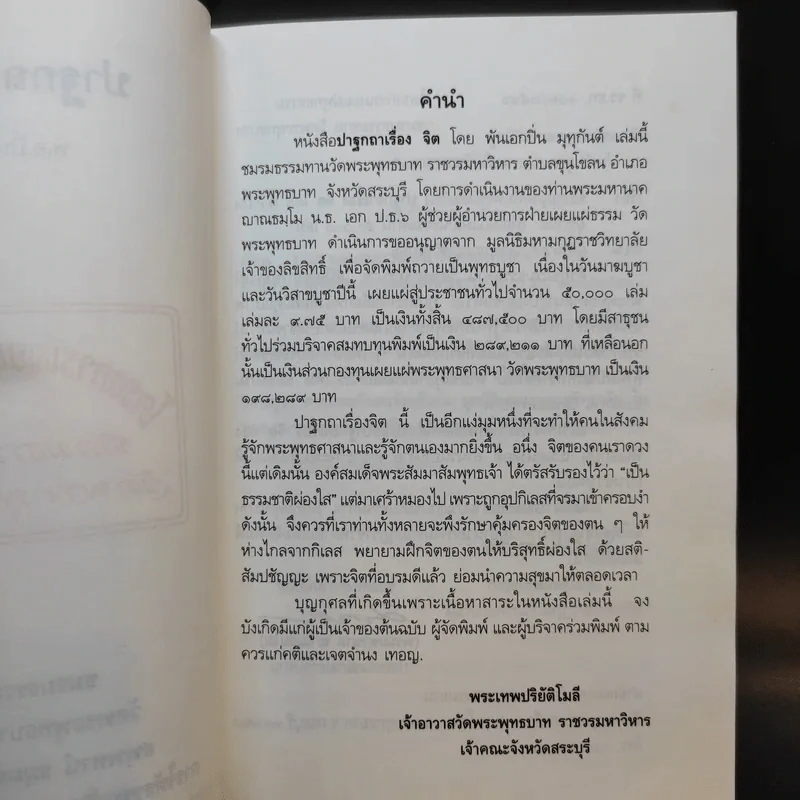 คำนำ
หนังสือปาฐกถาเรื่อง จิต โดย พันเอกปิ่น มุทุกันต์ เล่มนี้
ชมรมธรรมทานวัดพระพุทธบาท ราชวรมหาวิหาร ตำบลขุนโขลน อำเภอ
พระพุทธบาท จังหวัดสระบุรี โดยการดำเนินงานของท่านพระมหานาค
ญาณธมฺโม น.ธ. เอก ป.ธ.๖ ผู้ช่วยผู้อำนวยการฝ่ายเผยแผ่ธรรม วัด
พระพุทธบาท ดำเนินการขออนุญาตจาก มูลนิธิมหามกุฏราชวิทยาลัย
เจ้าของลิขสิทธิ์ เพื่อจัดพิมพ์ถวายเป็นพุทธบูชา เนื่องในวันมาฆบูชา
และวันวิสาขบูชาปีนี้ เผยแผ่สู่ประชาชนทั่วไปจำนวน ๕๐,๐๐๐ เล่ม
เล่มละ ๙.๗๕ บาท เป็นเงินทั้งสิ้น ๔๘๗,๕๐๐ บาท โดยมีสาธุชน
ทั่วไปร่วมบริจาคสมทบทุนพิมพ์เป็นเงิน ๒๘๙,๒๑๑ บาท ที่เหลือนอก
นั้นเป็นเงินส่วนกองทุนเผยแผ่พระพุทธศาสนา วัดพระพุทธบาท เป็นเงิน
๑๙๘,๒๘๙ บาท
ปาฐกถาเรื่องจิต นี้ เป็นอีกแง่มุมหนึ่งที่จะทำให้คนในสังคม
รู้จักพระพุทธศาสนาและรู้จักตนเองมากยิ่งขึ้น อนึ่ง จิตของคนเราดวง
นี้แต่เดิมนั้น องค์สมเด็จพระสัมมาสัมพุทธเจ้า ได้ตรัสรับรองไว้ว่า “เป็น
ธรรมชาติผ่องใส” แต่มาเศร้าหมองไป เพราะถูกอุปกิเลสที่จรมาเข้าครอบงำ
ดังนั้น จึงควรที่เราท่านทั้งหลายจะพึงรักษาคุ้มครองจิตของตน ๆ ให้
ห่างไกลจากกิเลส พยายามฝึกจิตของตนให้บริสุทธิ์ผ่องใส ด้วยสติ-
สัมปชัญญะ เพราะจิตที่อบรมดีแล้ว ย่อมนำความสุขมาให้ตลอดเวลา
บุญกุศลที่เกิดขึ้นเพราะเนื้อหาสาระในหนังสือเล่มนี้ จง
บังเกิดมีแก่ผู้เป็นเจ้าของต้นฉบับ ผู้จัดพิมพ์ และผู้บริจาคร่วมพิมพ์ ตาม
ควรแก่คติและเจตจำนง เทอญ.
พระเทพปริยัติโมลี
เจ้าอาวาสวัดพระพุทธบาท ราชวรมหาวิหาร
เจ้าคณะจังหวัดสระบุรี